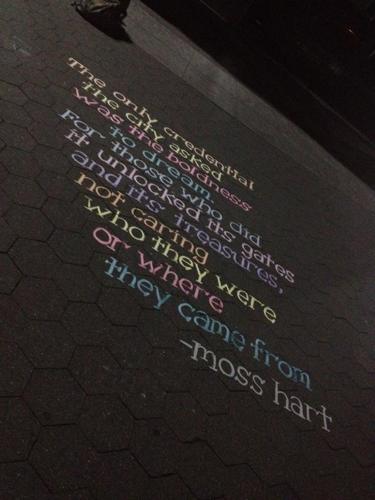 The only credential
the city asked
was the boldness
to dream.
For those who did
it unlocked its gates
and its treasures,
not caring
who they were
or where
they came from
-moss hart